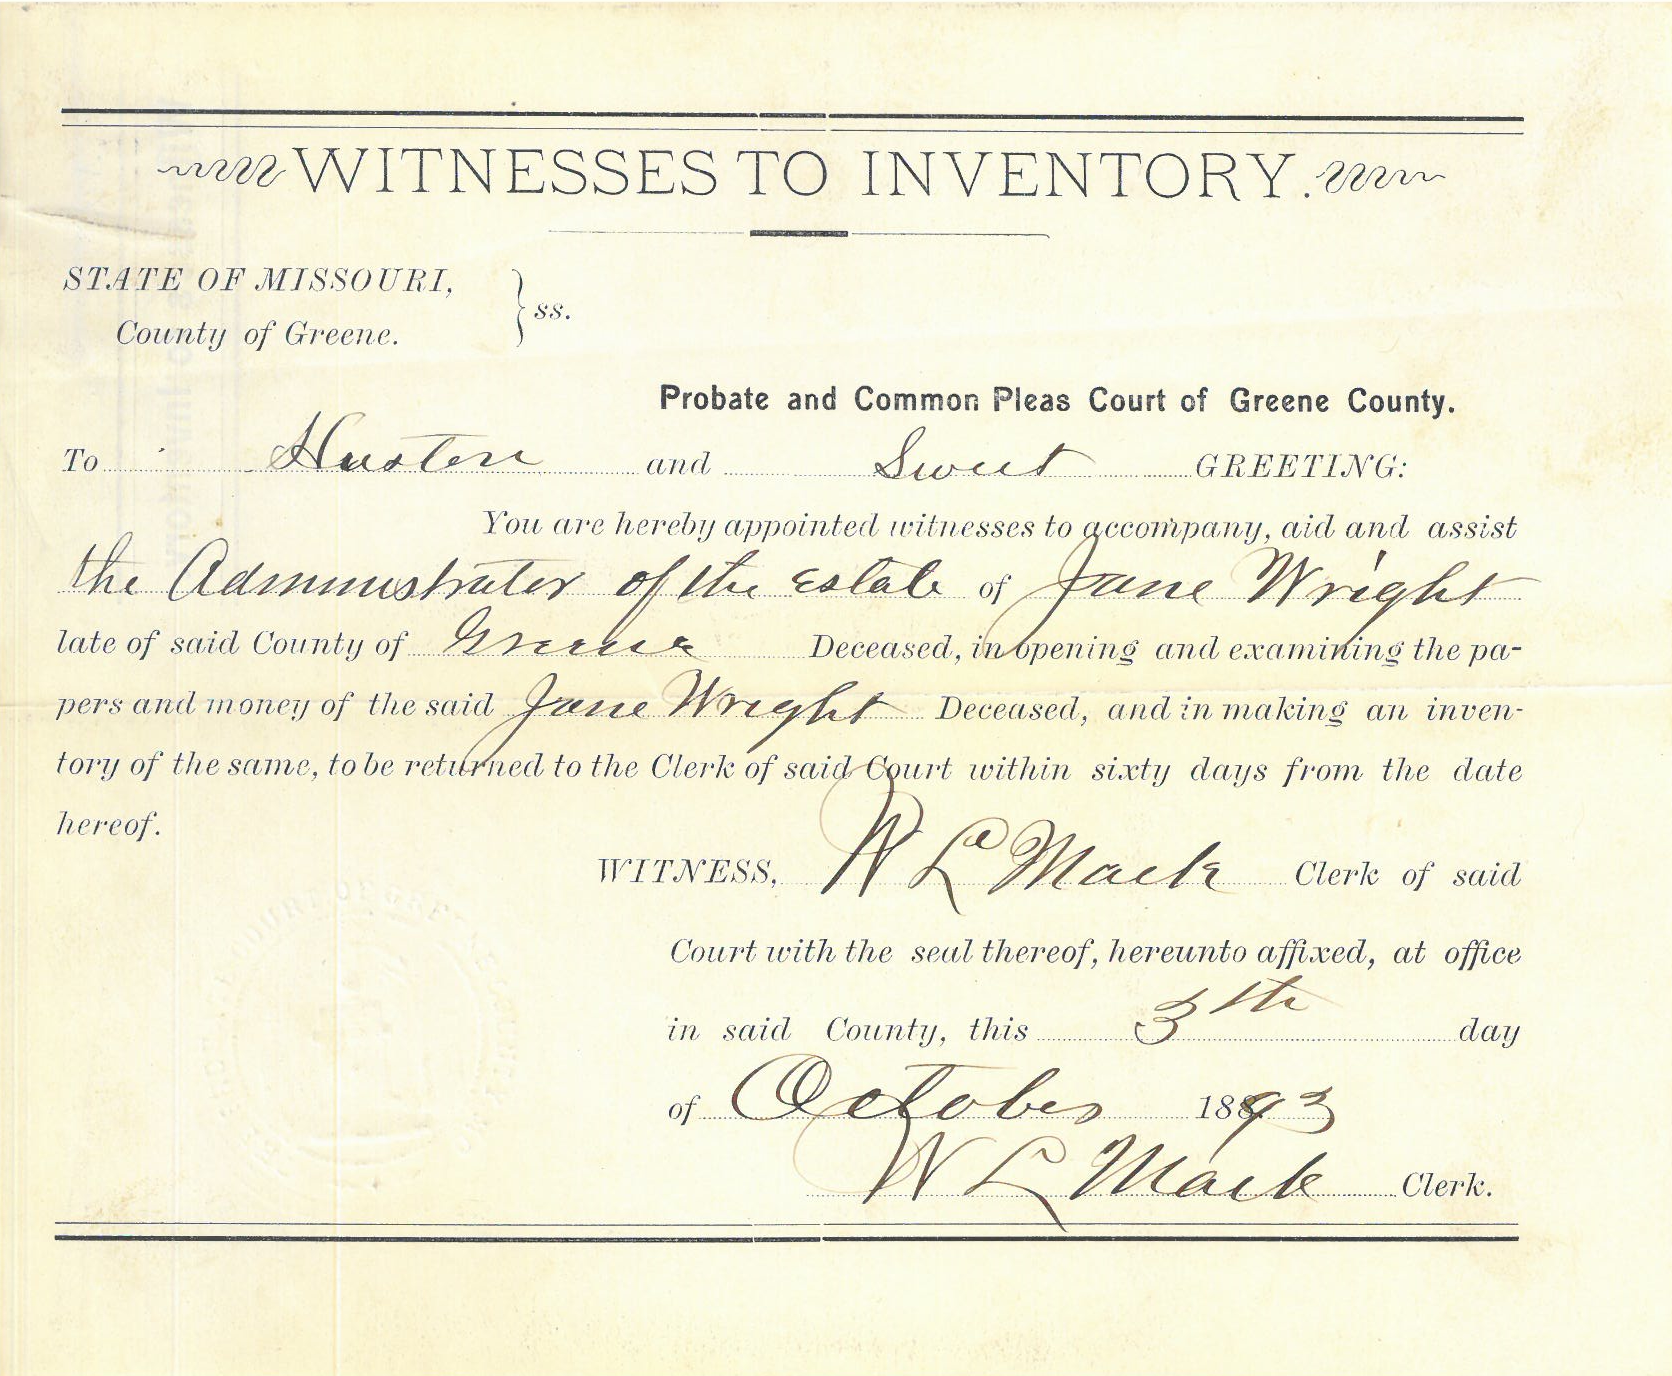 WITNESSES TO INVENTORY.
STATE OF MISSOURI,
County of Greene. } ss.
Probate and Common Pleas Court of Greene County.
To Huston and Sweet GREETING:
You are hereby appointed witnesses to accompany, aid and assist
the Administrator of the Estate of Jane Wright
late of said County of Greene Deceased, in opening and examining the pa-
pers and money of the said Jane Wright Deceased, and in making an inven-
tory of the same, to be returned to the Clerk of said Court within sixty days from the date
hereof.
WITNESS, W L Mack Clerk of said
Court with the seal thereof, hereunto affixed, at office
in said County, this 3th day
of October 1893
W L Mack Clerk.